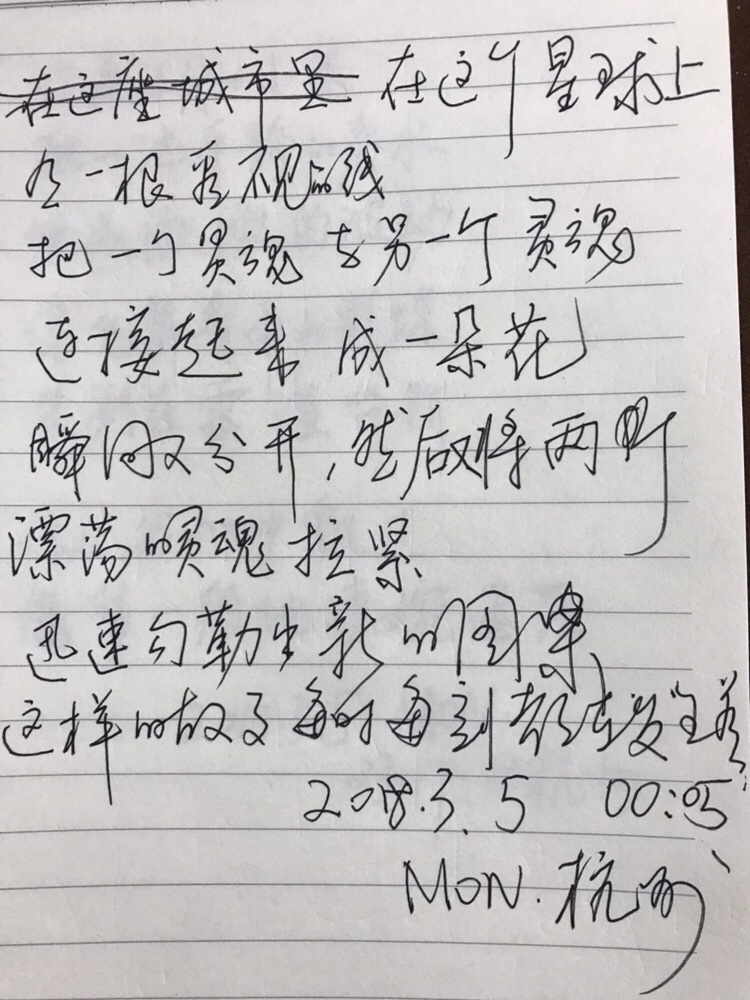 在这座城市里 在这个星球上
有一根看不见的线
把一个灵魂与另一个灵魂
连接起来 成一朵花
瞬间又分开,然后又将两个
漂荡的灵魂拉紧
迅速勾勒出新的图案
这样的故事每时每刻都在发生着
2018.3.5 00:05
MON. 杭州